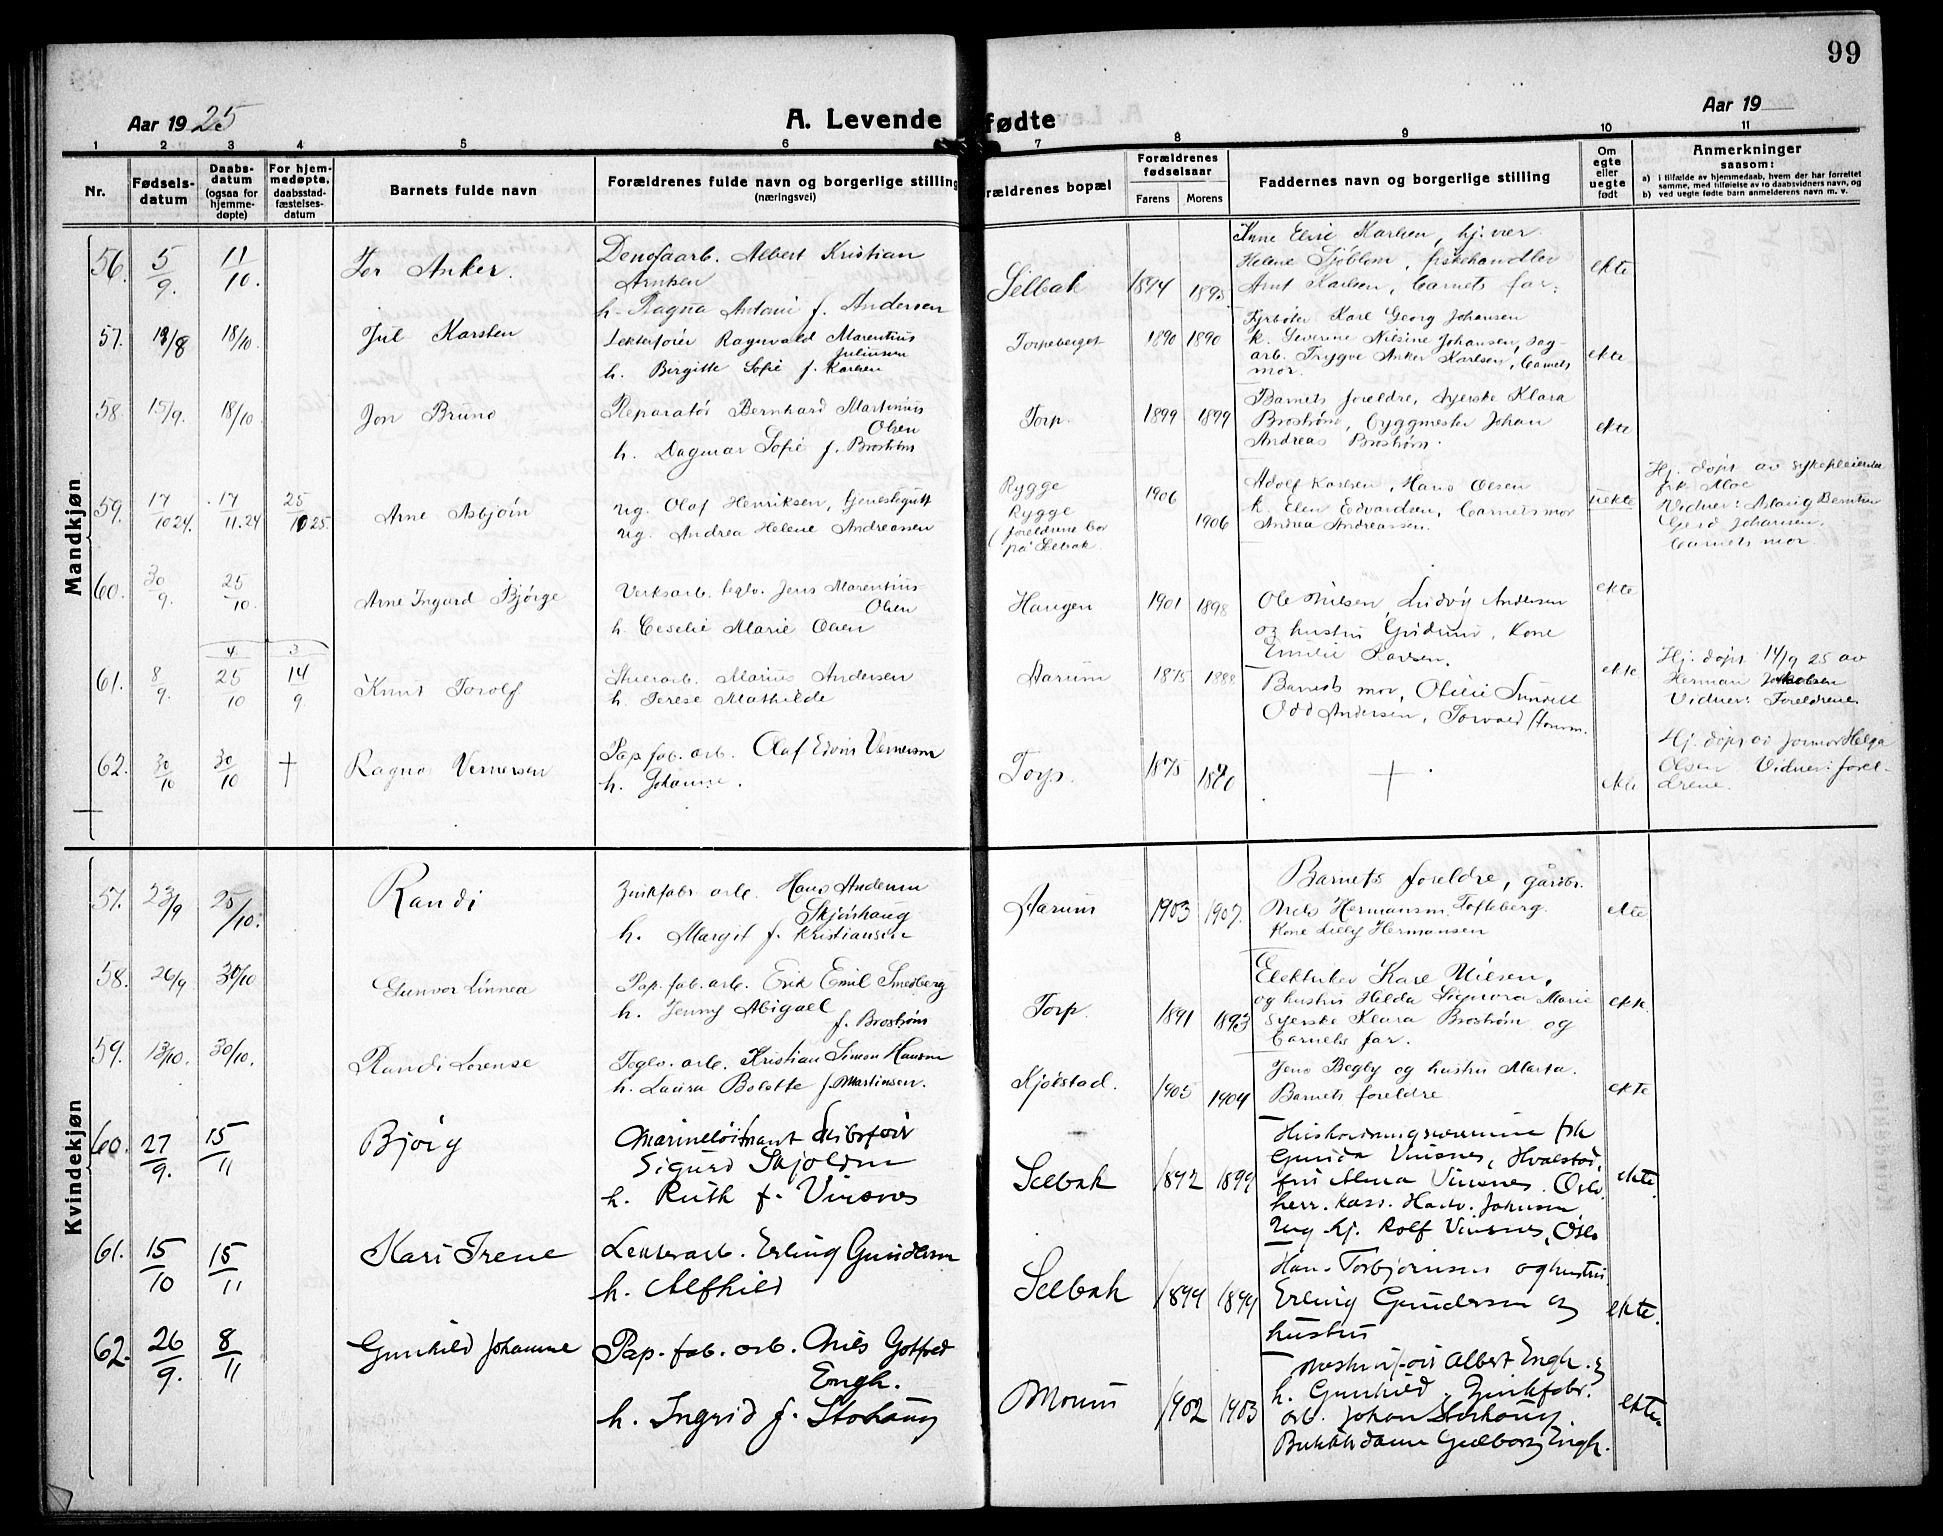 99
Aar 1925
A. Levende fødte
Aar 19
1 2 3 4 5 6 7 8 9 10 11
Nr.
Fødsels-
datum
Daabs-
datum
(ogsaa for
hjemme-
døpte)
For hjem-
medøpte,
daabsstad-
fæstelses-
datum
Barnets fulde navn
Forældrenes fulde navn og borgerlige stilling
(næringsvei)
rældrenes bopæl
Forældrenes
fødselsaar
Farens Morens
Faddernes navn og borgerlige stilling
Om
egte
eller
uegte
født
Anmerkninger
saasom:
a) i tilfælde av hjemmedaab, hvem der har forrettet
samme, med tilføielse av to daabsvidners navn, og
b) ved uegte fødte barn anmelderens navn m. v.
Mandkjøn
56. 5/9. 11/10. Tor Anker.
Albert Kristian
Arntsen
h. Ragna Antoni f. Andersen
Selbak 1894 1895
Karlsen, hj.vær
Helene Sjöblom, fiskehandler
Arnt Karlsen, barnets far.
ekte
57. 18/10. Jul Karsten
Lekterfører Ragnvald Marentius
Juliussen
h. Birgitte Sofie f. Karlsen
Torpeberget 1890 1890
Fyrbøter Karl Georg Johansen
k. Severine Nilsine Johansen, sag-
arb. Trygve Anker Karlsen, barnets
mor.
ekte
58. 15/9. 18/10 Jon Bruno
Reparatør Bernhard Martinius
Olsen
h. Dagmar Sofie f. Broström
Torp. 1899 1899
Barnets foreldre, syerske Klara
Broström, byggmester Johan
Andreas Broström.
ekte
59. 17/10 24. 17/11.24 25/10 25. Arne Asbjørn
ug. Olaf Henriksen,
ug. Andrea Helene Andreassen
Rygge
Rygge
(foreldrene bor
på Selbak.
1906 1906
Adolf Karlsen, Hans Olsen
k. Elen Edvardsen, barnets mor
Andrea Andreassen.
uekte
Hj. døpt av sykepleierske
frk Moe
Vidner:
Gerd Johansen.
barnets mor.
60. 30/9. 25/10. Arne Ingard Bjørge
Verksarb. Jens Marentius
Olsen
h. Cecelie Marie Olsen
Haugen 1901 1898
Ole Nilsen, Ludvig Andersen
og hustru Gudrun, Kone
Emilie Karlsen.
ekte
4 3
61. 8/9. 25/10 14/9 Knut Torolf
Marius Andersen
h. Terese Mathilde
Aarum 1875 1888
Barnets mor, Otilie Sundell
Odd Andersen, Torvald
ekte
Hj. døpt 14/9 25 av
Herman Jakobsen
Vidner: Foreldrene
62. 30/10 30/10 † Ragna Vernersen
Pap. fab. arb. Olaf Edvin Vernersen
h. Johanne.
Torp. 1875
†
ekte
Hj. døpt av Jormor Helga
Olsen Vidner: forel-
drene.
Kvindekjøn
57. 23/9 25/10. Randi
Zinkfabr. arb. Hans Andersen
Skjørshaug
h. Margit f. Kristiansen
Aarum 1903 1907.
Barnets foreldre, gårdbr.
Nils Hermansen Tofteberg.
Kone Lilly Hermansen
ekte
58. 26/9 30/10 Gunvor Linnea
Pap. fab. arb. Erik Emil Smedberg
h. Jenny Abigael
f. Broström
Torp. 1891 1893
Elektriker Karl Nilsen,
og hustru Hilda Signora Marie
syerske Klara Broström og
barnets far.
ekte
59. 13/10. 30/10. Randi Lovense
Teglv. arb. Kristian Simon Hansen
h. Laura Bolette f. Martinsen.
Kjølstad. 1905 1904
Jens Begby og hustru Marta.
Barnets foreldre
ekte
60. 27/9. 15/11 Bjørg
Marineløitnant Skibsfører
Sigurd Skjoldm
h. Ruth f. Vinsnes
Selbak 1892 1899
frk
Gunda Vinsnes, Hvalstad,
Vinsnes Oslo.
herr. kass. Johnsen
Ung hj. Rolf Vinsnes, Oslo
ekte.
61. 15/10 15/11 Kari Irene
Lekterarb. Erling Gundersen
h. Alfhild
Selbak 1899 1899
Hans Torbjørnsen og hustru
Erling Gundersen og
hustru
ekte.
62. 26/9. 8/11 Gunhild Johanne
Pap. fab. arb. Nils Gotfred
Engh.
h. Ingrid f. Stohaug
Moum 1902 1903
Albert Engh. og
h. Gunhild. Zinkfabr.
arb. Johan Storhaug.
Butikkdame Gulborg Engh.
ekte.